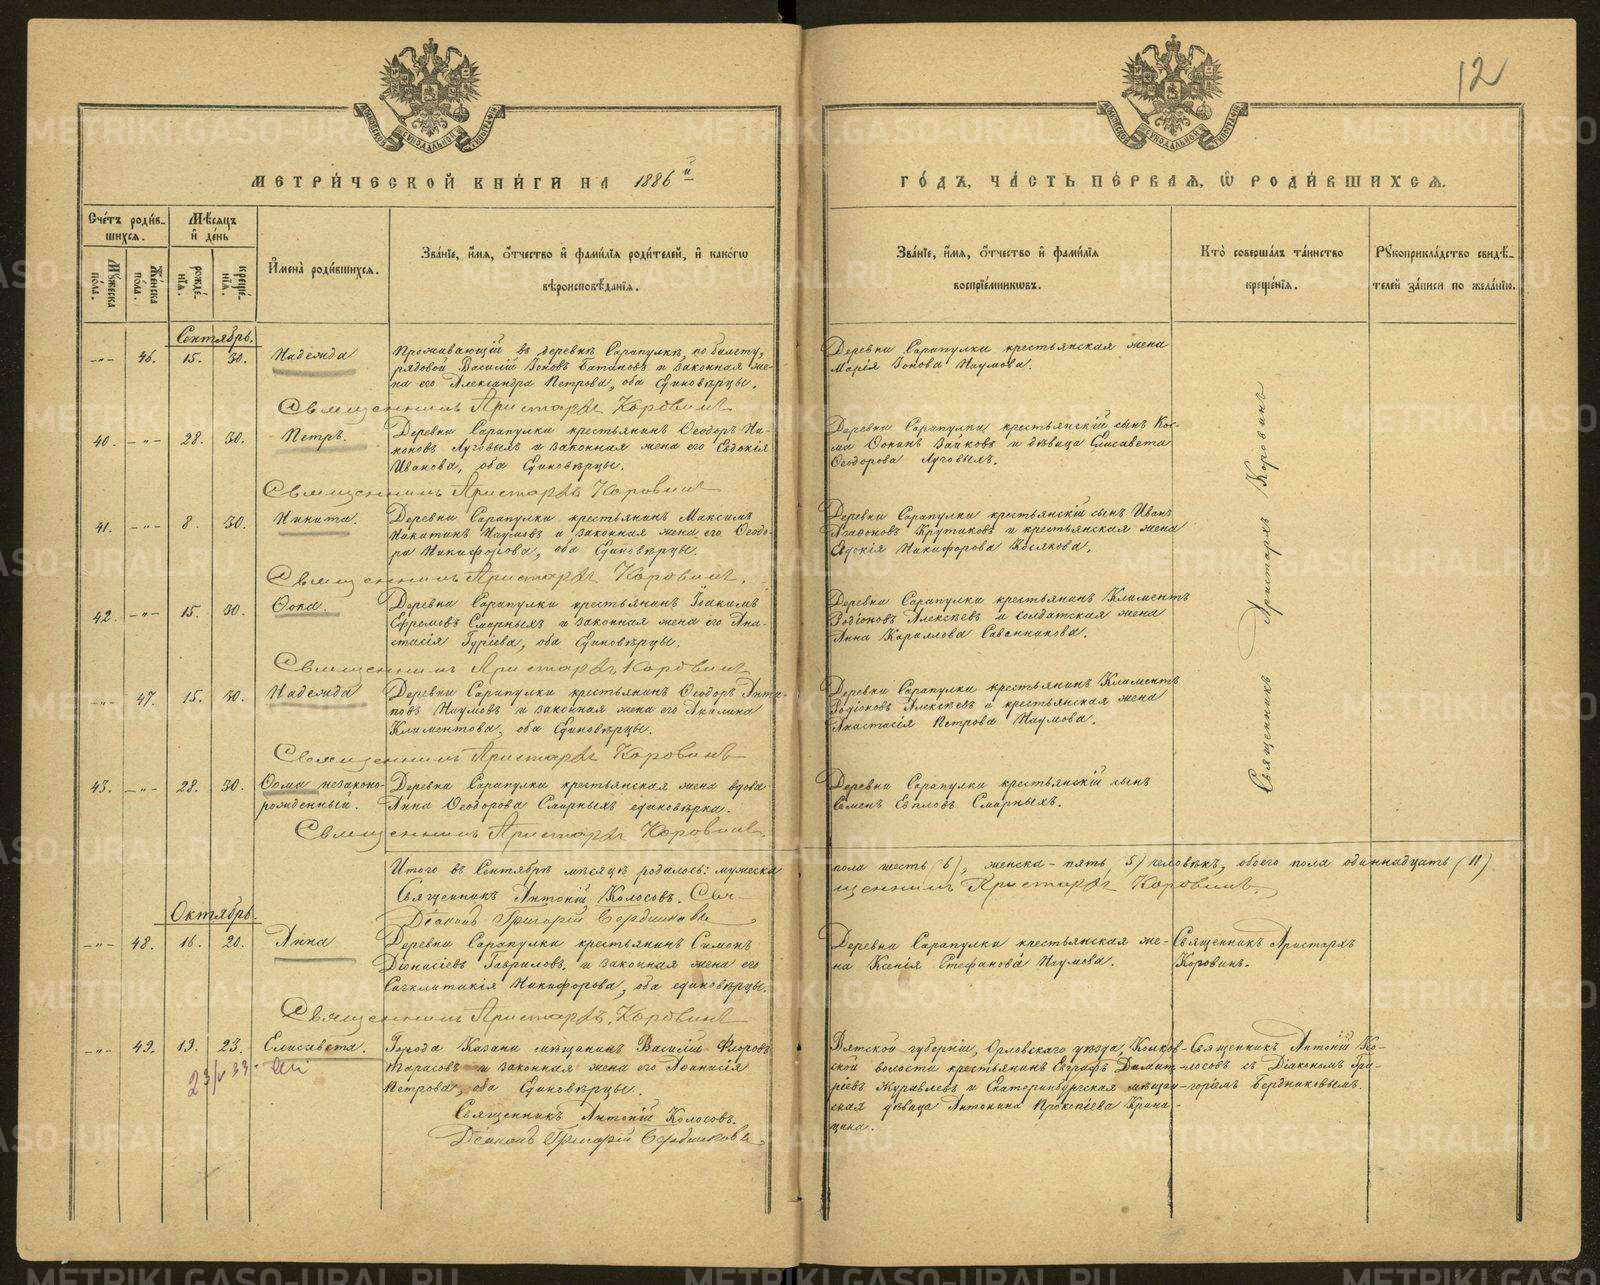 12
МЕТРИЧЕСКОЙ КНИГИ НА 1886й
ГОДЪ, ЧАСТЬ ПЕРВАЯ, Ѡ РОДИВШИХСЯ.
Счетъ родившихся.
Мужеска пола.
Женска пола.
Мѣсяцъ и день
рожденія.
крещенія.
Имена родившихся.
Званіе, имя, отчество и фамилія родителей, и какогѡ
вѣроисповѣданія.
Званіе, имя, отчество и фамилія
воспріемникѡвъ.
Кто совершалъ таинство
крещенія.
Рукоприкладство свидѣ-
телей записи по желанію.
Сентябрь.
-"- 46. 15. 30. Надежда
Проживающій въ деревнѣ Сарапулкѣ, по билету,
рядовой Василій Іоновъ Батановъ и законная же-
на его Александра Петрова, оба Единовѣрцы.
Деревни Сарапулки крестьянская жена
Марія Іонова Наумова.
Священникъ Аристархъ Коровинъ
40. -"- 28. 30. Петръ.
Деревни Сарапулки крестьянинъ Ѳеодоръ Ни-
коновъ Луговыхъ и законная жена его Евдокія
Иванова, оба Единовѣрцы.
Деревни Сарапулки крестьянскій сынъ Кос-
ма Ѳокинъ Зайковъ и дѣвица Елисавета
Ѳеодорова Луговыхъ.
Священникъ Аристархъ Коровинъ
41. -"- 8. 30. Никита.
Деревни Сарапулки крестьянинъ Максимъ
Никитинъ Наумовъ и законная жена его Ѳеодо-
ра Никифорова, оба Единовѣрцы.
Деревни Сарапулки крестьянскій сынъ Иванъ
Агафоновъ Крутиковъ и крестьянская жена
Никифорова Косякова.
Священникъ Аристархъ Коровинъ.
42. -"- 15. 30. Ѳока.
Деревни Сарапулки крестьянинъ Іоакимъ
Ефремовъ Смирныхъ и законная жена его Ана-
стасія Гуріева, оба Единовѣрцы.
Деревни Сарапулки крестьянинъ Климентъ
Родіоновъ Алексѣевъ и солдатская жена
Анна Кириллова
Священникъ Аристархъ Коровинъ
-"- 47. 15. 30. Надежда
Деревни Сарапулки крестьянинъ Ѳеодоръ Анти-
повъ Наумовъ и законная жена его Акилина
Климентова, оба Единовѣрцы.
Деревни Сарапулки крестьянинъ Климентъ
Родіоновъ Алексѣевъ и крестьянская жена
Анастасія Петрова Наумова.
Священникъ Аристархъ Коровинъ
43. -"- 28. 30. Ѳома незаконо-
рожденный.
Деревни Сарапулки крестьянская жена вдова
Анна Ѳеодорова Смирныхъ единовѣрка.
Деревни Сарапулки крестьянскій сынъ
Семенъ Евпловъ Смирныхъ.
Священникъ Аристархъ Коровинъ.
Священникъ Аристархъ Коровинъ
Итого въ Сентябрѣ мѣсяцѣ родилось: мужеска
пола шесть (6), женска - пять (5) человѣкъ, обоего пола одиннадцать (11)
Священникъ Антоній Колосовъ. Свя-
щенникъ Аристархъ Коровинъ.
Діаконъ Григорій Бердниковъ
Октябрь.
-"- 48. 16. 20. Анна
Деревни Сарапулки крестьянинъ Симонъ
Діонисіевъ Гавриловъ и законная жена его
Сигклитикія Никифорова, оба единовѣрцы.
Деревни Сарапулки крестьянская же-
на Ксенія Стефанова Наумова.
Священникъ Аристархъ
Коровинъ.
Священникъ Аристархъ Коровинъ
-"- 49. 19. 23. Елисавета.
Города Казани мѣщанинъ Василій Флоровъ
Тарасовъ и законная жена его Аѳанасія
Петрова, оба Единовѣрцы.
Вятской губерніи, Орловскаго уѣзда,
ской волости крестьянинъ Евграфъ Димит-
ріевъ Журавлевъ и Екатеринбургская мѣщан-
ская дѣвица Антонина Прокопіева
Священникъ Антоній Ко-
лосовъ съ Діакономъ Гри-
горіемъ Бердниковымъ.
Священникъ Антоній Колосовъ.
Діаконъ Григорій Бердниковъ.
METRIKI.GASO-URAL.RU